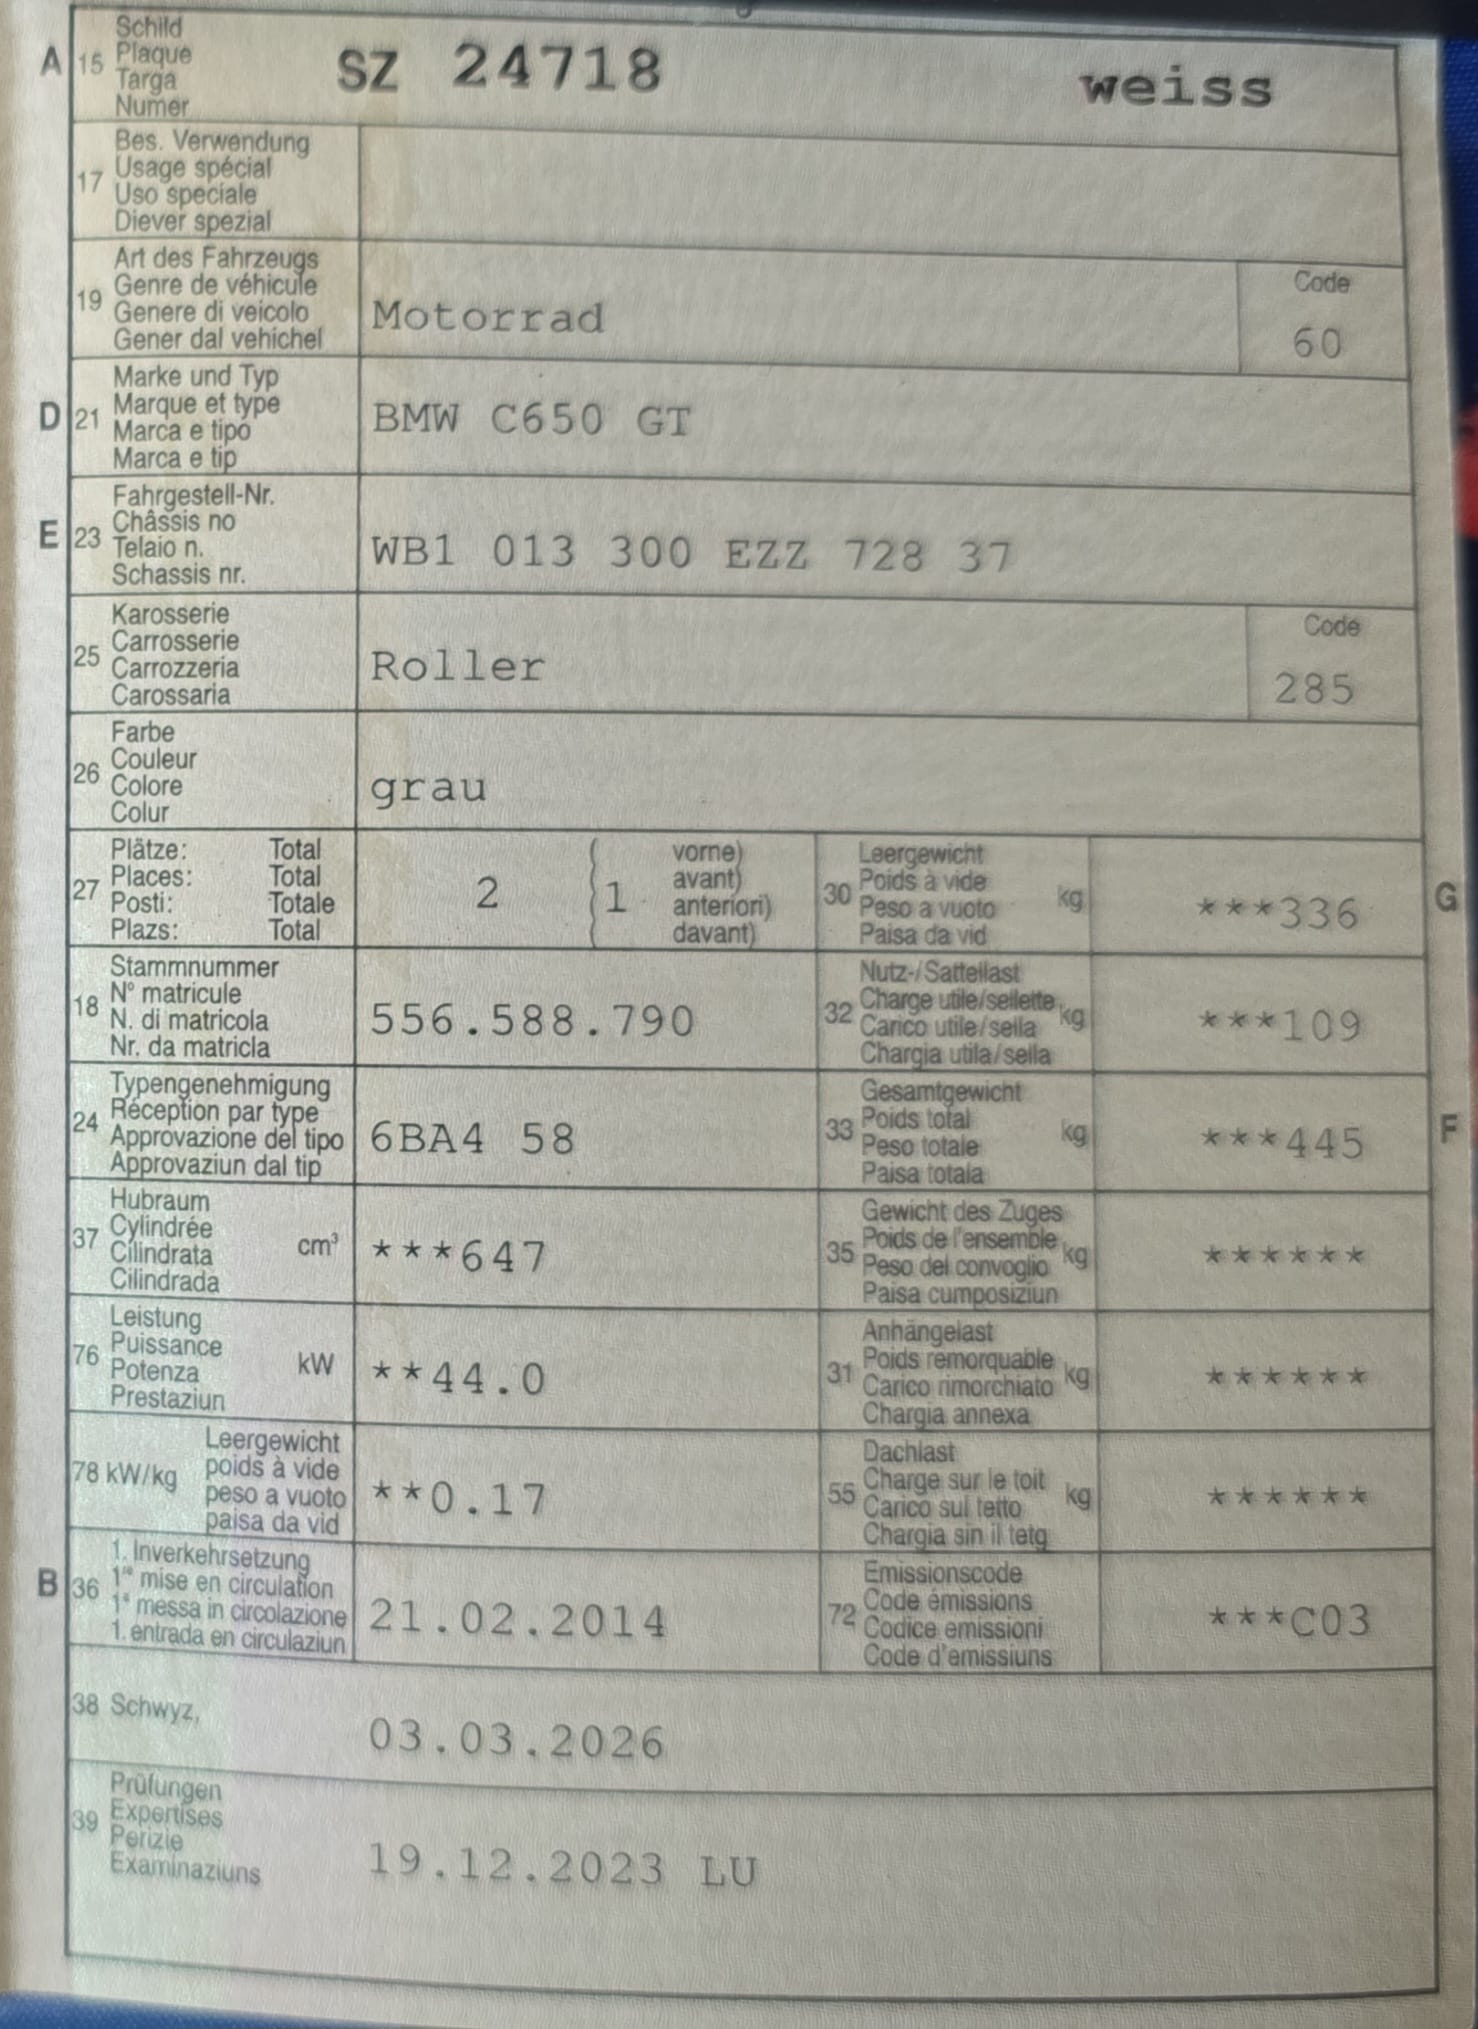 A 15 Schild
Plaque
Targa
Numer
SZ 24718 weiss
17 Bes. Verwendung
Usage spécial
Uso speciale
Diever spezial
19 Art des Fahrzeugs
Genre de véhicule
Genere di veicolo
Gener dal vehichel
Motorrad
Code
60
D 21 Marke und Typ
Marque et type
Marca e tipo
Marca e tip
BMW C650 GT
E 23 Fahrgestell-Nr.
Châssis no
Telaio n.
Schassis nr.
WB1 013 300 EZZ 728 37
25 Karosserie
Carrosserie
Carrozzeria
Carossaria
Roller
Code
285
26 Farbe
Couleur
Colore
Colur
grau
27 Plätze: Total
Places: Total
Posti: Totale
Plazs: Total
2 ( 1 vorne)
avant)
anteriori)
davant)
30 Leergewicht
Poids à vide
Peso a vuoto
Paisa da vid
kg
***336
G
18 Stammnummer
N° matricule
N. di matricola
Nr. da matricla
556.588.790
32 Nutz-/Sattellast
Charge utile/sellette
Carico utile/sella
Chargia utila/sella
kg
***109
24 Typengenehmigung
Réception par type
Approvazione del tipo
Approvaziun dal tip
6BA4 58
33 Gesamtgewicht
Poids total
Peso totale
Paisa totala
kg
***445
F
37 Hubraum
Cylindrée
Cilindrata
Cilindrada
cm³
***647
35 Gewicht des Zuges
Poids de l'ensemble
Peso del convoglio
Paisa cumposiziun
kg
******
76 Leistung
Puissance
Potenza
Prestaziun
kW
**44.0
31 Anhängelast
Poids remorquable
Carico rimorchiato
Chargia annexa
kg
******
78 kW/kg Leergewicht
poids à vide
peso a vuoto
paisa da vid
**0.17
55 Dachlast
Charge sur le toit
Carico sul tetto
Chargia sin il tetg
kg
******
B 36 1. Inverkehrsetzung
1re mise en circulation
1a messa in circolazione
1. entrada en circulaziun
21.02.2014
72 Emissionscode
Code émissions
Codice emissioni
Code d'emissiuns
***C03
38 Schwyz,
03.03.2026
39 Prüfungen
Expertises
Perizie
Examinaziuns
19.12.2023 LU